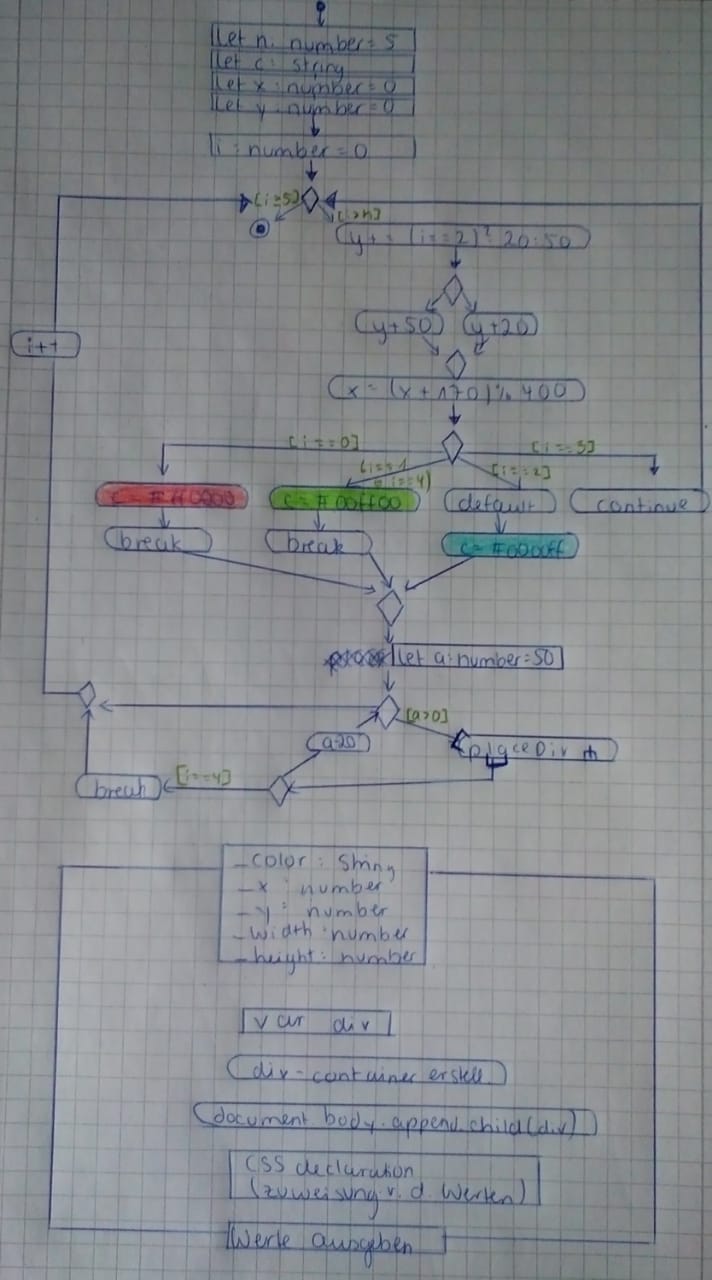 let n: number = 5
let c: string
let x: number = 0
let y: number = 0
i: number = 0
[i≥5]
[i>n]
y+= (i==2)? 20:50
y+50
y+20
i++
x = (x + 170)% 400
[i==0]
[i==1
i==4]
[i==2]
[i==3]
c= #ff0000
c= #00ff00
default
continue
break
break
c= #0000ff
let a: number=50
[a>0]
a-20
placeDiv
break
[i==4]
_color: String
_x: number
_y: number
_width: number
_height: number
var div
div-container erstell.
document.body.append.child(div)
CSS declaration
(zuweisung v. d. Werten)
Werte ausgeben